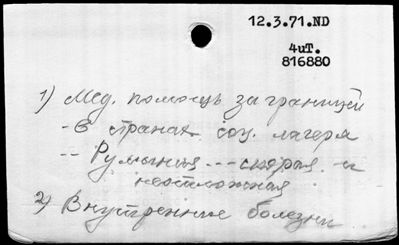 12.3.71.ND
4иТ.
816880
1) Мед. помощь за границей
- в странах соц. лагеря
-- Румыния --- скорая и
неотложная
2) Внутренние болезни